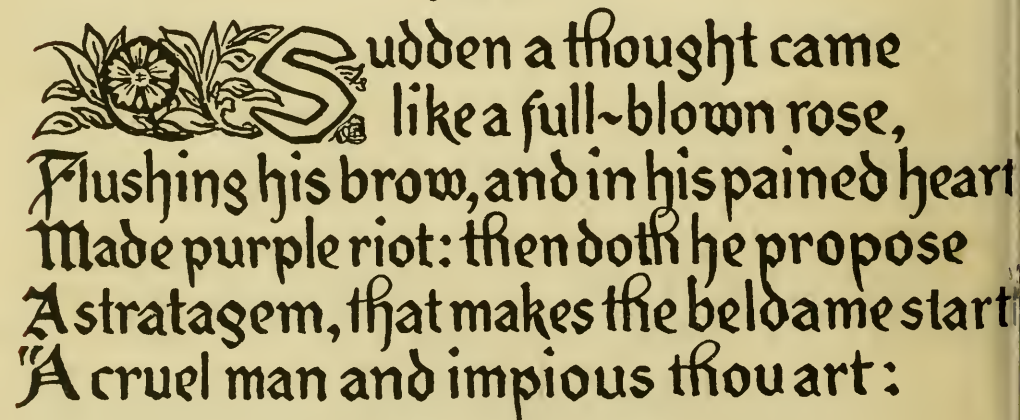 Sudden a thought came
like a full-blown rose,
Flushing his brow, and in his pained heart
Made purple riot: then doth he propose
A stratagem, that makes the beldame start
"A cruel man and impious thou art: